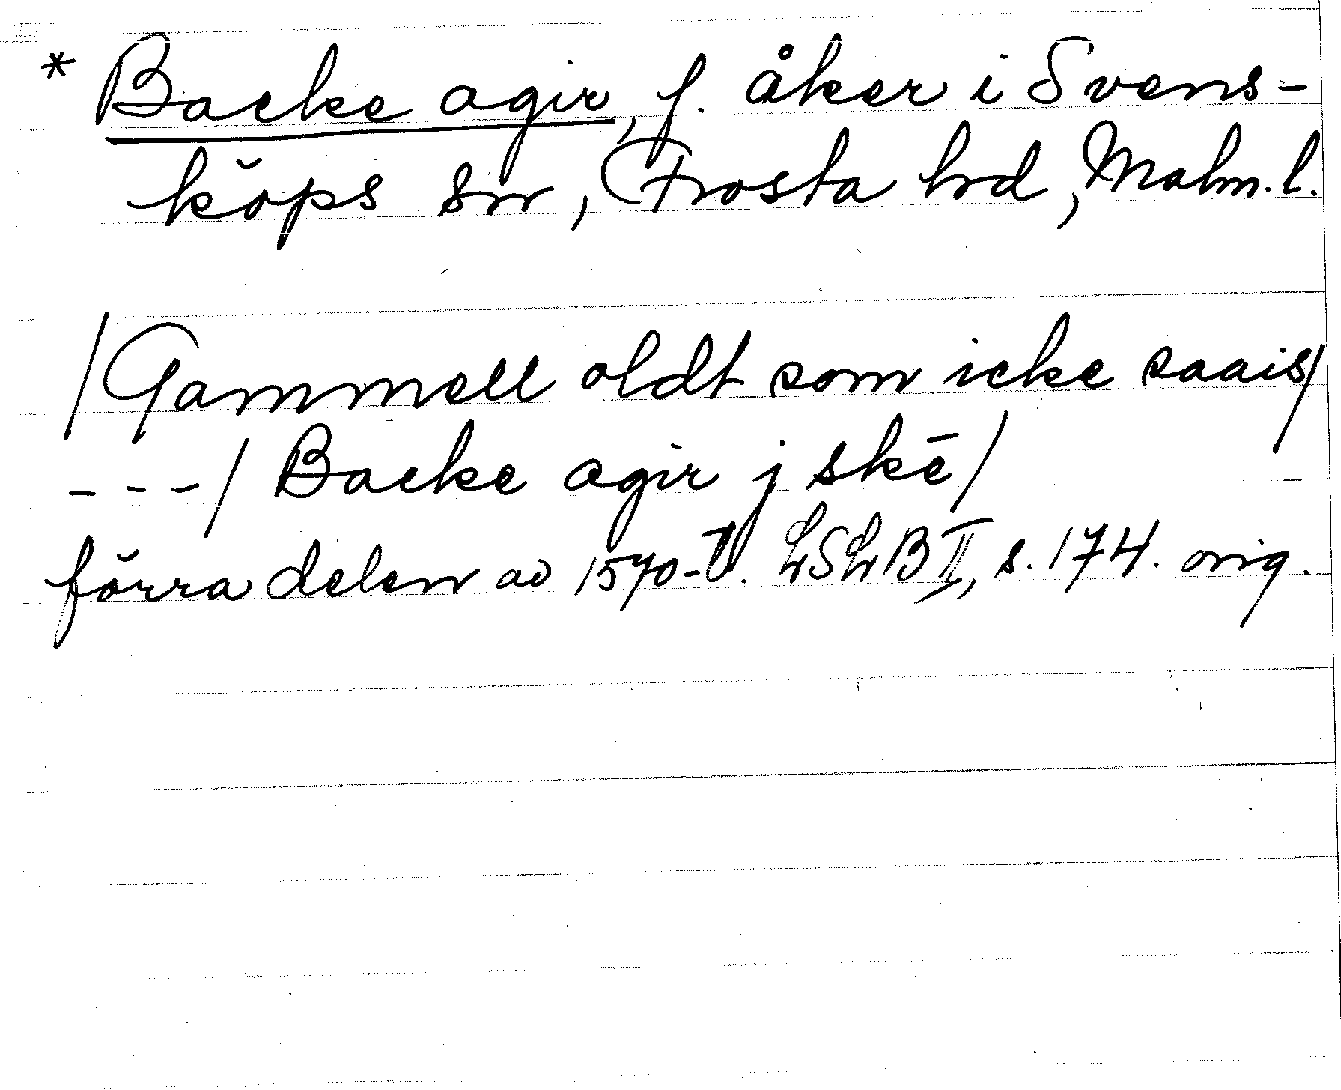 * Backe agir, f. åker i Svens-
köps sn, Frosta hd, Malm. l.
/Gammell oldt som icke saais/
---/ Backe agir j skē/
förra delen av 1570-t. LSLB II, s. 174. orig.